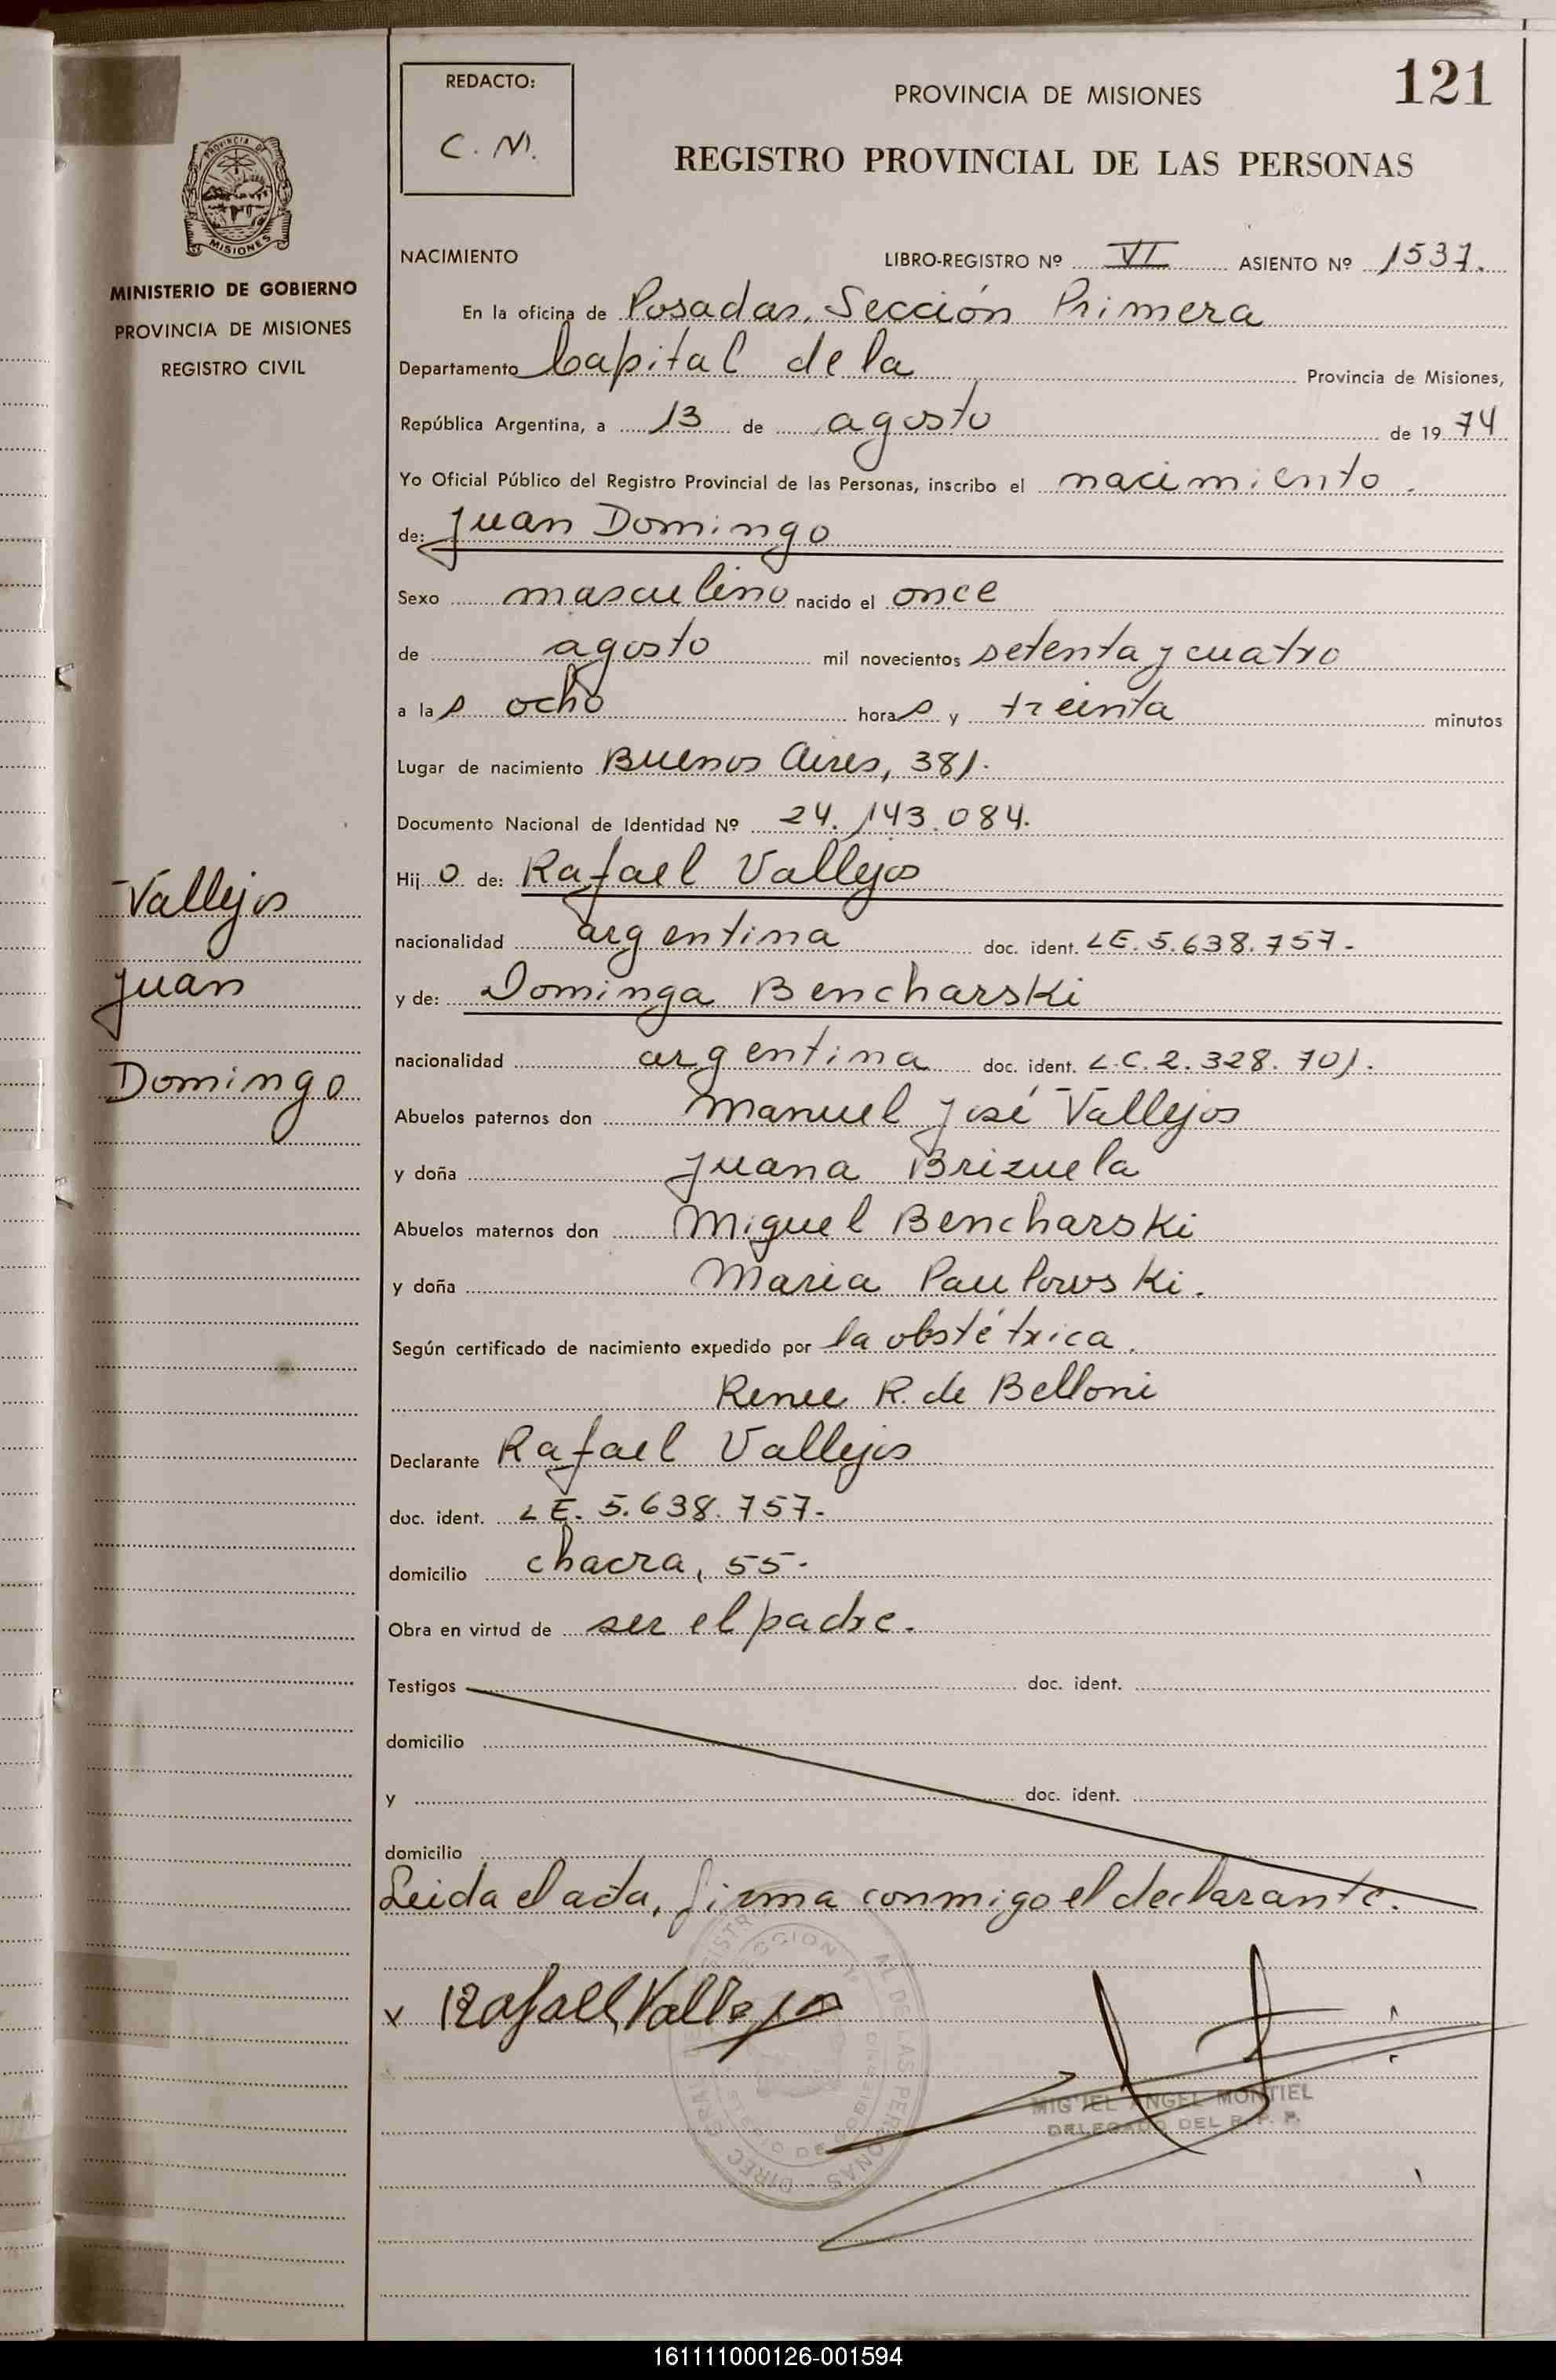 121
REDACTO:
C. M.
PROVINCIA DE MISIONES
REGISTRO PROVINCIAL DE LAS PERSONAS
PROVINCIA DE
MISIONES
MINISTERIO DE GOBIERNO
PROVINCIA DE MISIONES
REGISTRO CIVIL
Vallejos
Juan
Domingo
NACIMIENTO LIBRO-REGISTRO Nº VI ASIENTO Nº 1537.
En la oficina de Posadas, Sección Primera
Departamento Capital de la Provincia de Misiones,
República Argentina, a 13 de agosto de 1974
Yo Oficial Público del Registro Provincial de las Personas, inscribo el nacimiento.
de: Juan Domingo
Sexo masculino nacido el once
de agosto mil novecientos setenta y cuatro
a las ocho horas y treinta minutos
Lugar de nacimiento Buenos Aires, 381.
Documento Nacional de Identidad Nº 24.143.084.
Hijo de: Rafael Vallejos
nacionalidad argentina doc. ident. LE. 5.638.757-
y de: Dominga Bencharski
nacionalidad argentina doc. ident. L.C. 2.328.701.
Abuelos paternos don Manuel José Vallejos
y doña Juana Brizuela
Abuelos maternos don Miguel Bencharski
y doña Maria Paulowski.
Según certificado de nacimiento expedido por la obstétrica.
Renee R. de Belloni
Declarante Rafael Vallejos
doc. ident. LE. 5.638.757-
domicilio chacra, 55-
Obra en virtud de ser el padre.
Testigos doc. ident.
domicilio
y doc. ident.
domicilio
Leida el acta, firma conmigo el declarante.
x Rafael Vallejos
MIGUEL ANGEL MONTIEL
DELEGADO DEL R. P. P.
161111000126-001594